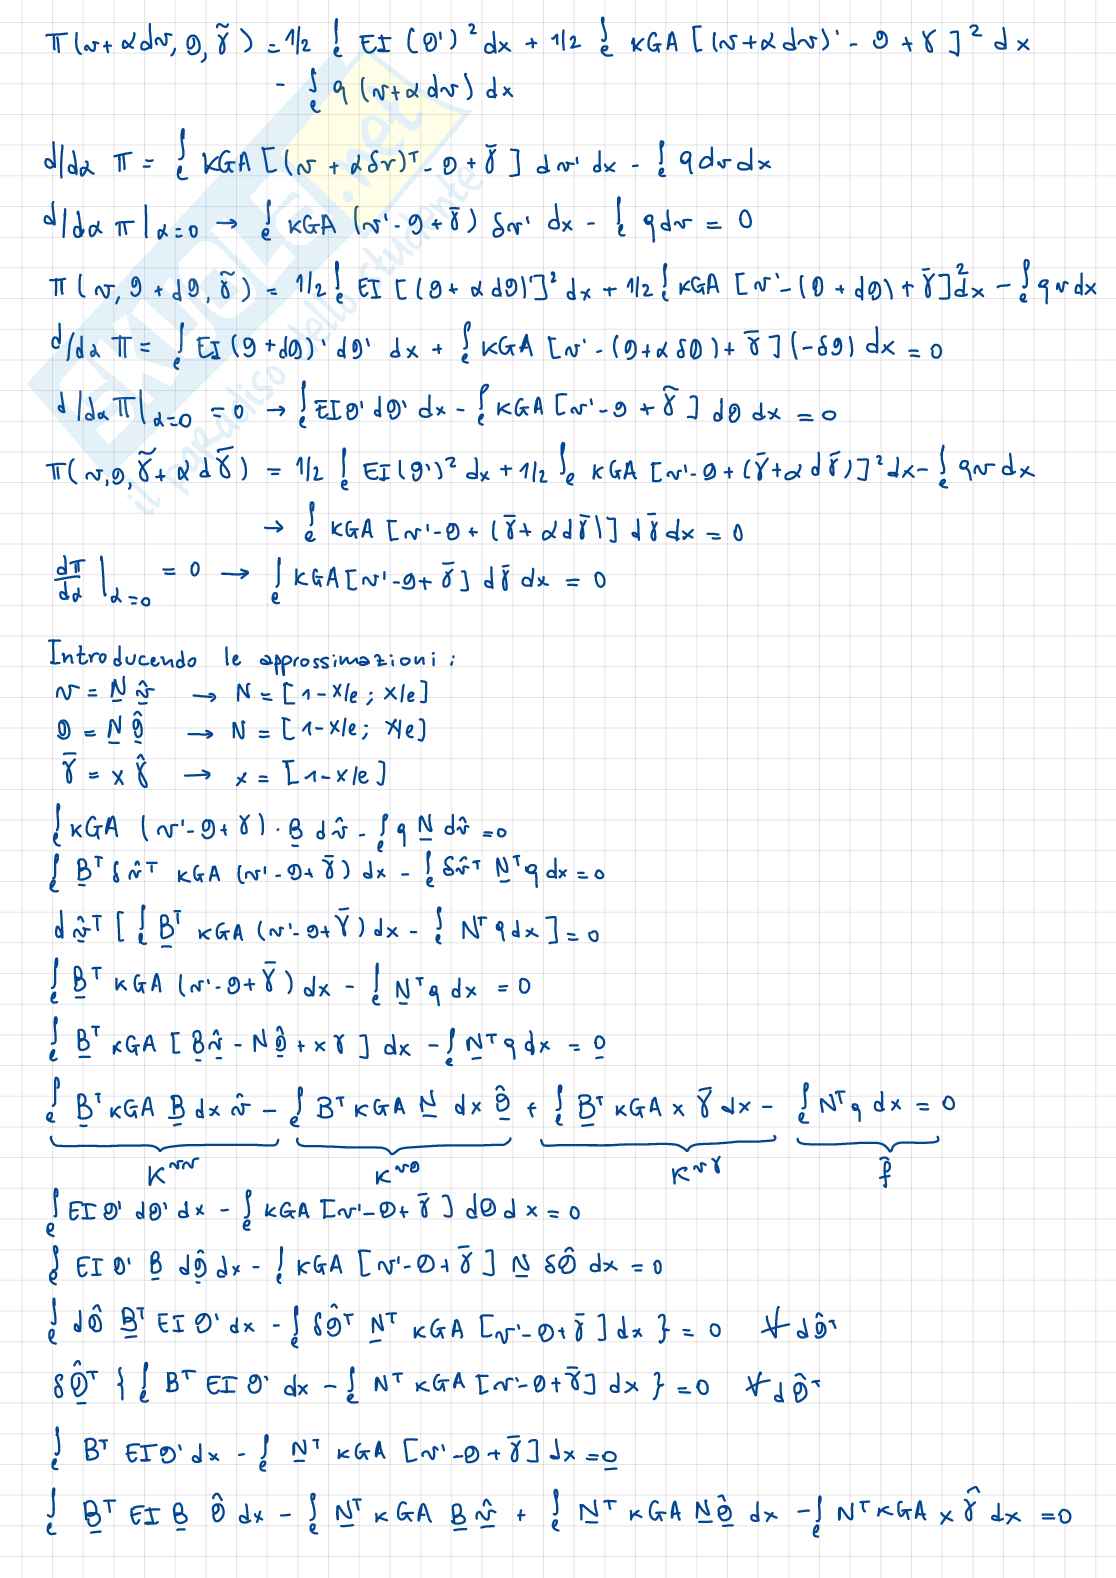 π(v+αdv, θ, γ̃) = 1/2 ∫e EI (θ')² dx + 1/2 ∫e KGA [(v+αdv)' - θ + γ]² dx
- ∫e q (v+αdv) dx
d/dα π = ∫e KGA [(v + αδv)ᵀ - θ + γ̄] dv' dx - ∫e q dv dx
d/dα π|α=0 → ∫e KGA (v'-θ+γ̄) δv' dx - ∫e q dv = 0
π(v, θ+dθ, γ̃) = 1/2 ∫e EI [(θ+αdθ)']² dx + 1/2 ∫e KGA [v'-(θ+dθ)+γ̄]² dx - ∫e qv dx
d/dα π = ∫e EI (θ+dθ)' dθ' dx + ∫e KGA [v'-(θ+αδθ)+γ̄](-δθ) dx = 0
d/dα π|α=0 = 0 → ∫e EIθ' dθ' dx - ∫e KGA [v'-θ+γ̃] dθ dx = 0
π(v,θ,γ̃+αdγ̄) = 1/2 ∫e EI(θ')² dx + 1/2 ∫e KGA [v'-θ+(γ̄+αdγ̄)]² dx - ∫e qv dx
→ ∫e KGA [v'-θ+(γ̄+αdγ̄)] dγ̄ dx = 0
dπ/dα |α=0 = 0 → ∫e KGA [v'-θ+γ̄] dγ̄ dx = 0
Introducendo le approssimazioni:
v = N v̂ → N = [1-x/e ; x/e]
θ = N θ̂ → N = [1-x/e; x/e]
γ̄ = x γ̂ → x = [1-x/e]
∫e KGA (v'-θ+γ) · B dv̂ - ∫e q N dv̂ = 0
∫e Bᵀ δv̂ᵀ KGA (v'-θ+γ̄) dx - ∫e δv̂ᵀ Nᵀ q dx = 0
d v̂ᵀ [ ∫e Bᵀ KGA (v'-θ+γ̄) dx - ∫e Nᵀ q dx ] = 0
∫e Bᵀ KGA (v'-θ+γ̄) dx - ∫e Nᵀ q dx = 0
∫e Bᵀ KGA [Bv̂ - Nθ̂ + xγ] dx - ∫e Nᵀ q dx = 0
∫e Bᵀ KGA B dx v̂ - ∫e Bᵀ KGA N dx θ̂ + ∫e Bᵀ KGA x γ̄ dx - ∫e Nᵀ q dx = 0
Kᵛᵛ Kᵛᶿ Kᵛᵞ f̂
∫e EIθ' dθ' dx - ∫e KGA [v'-θ+γ̄] dθ dx = 0
∫e EI θ' B dθ̂ dx - ∫e KGA [v'-θ+γ̄] N δθ̂ dx = 0
∫e dθ̂ Bᵀ EI θ' dx - ∫e δθ̂ᵀ Nᵀ KGA [v'-θ+γ̄] dx } = 0 ∀ dθ̂ᵀ
δθ̂ᵀ { ∫e Bᵀ EI θ' dx - ∫e Nᵀ KGA [v'-θ+γ̄] dx } = 0 ∀ dθ̂ᵀ
∫e Bᵀ EIθ' dx - ∫e Nᵀ KGA [v'-θ+γ̄] dx = 0
∫e Bᵀ EI B θ̂ dx - ∫e Nᵀ KGA B v̂ + ∫e Nᵀ KGA N θ̂ dx - ∫e Nᵀ KGA x γ̂ dx = 0